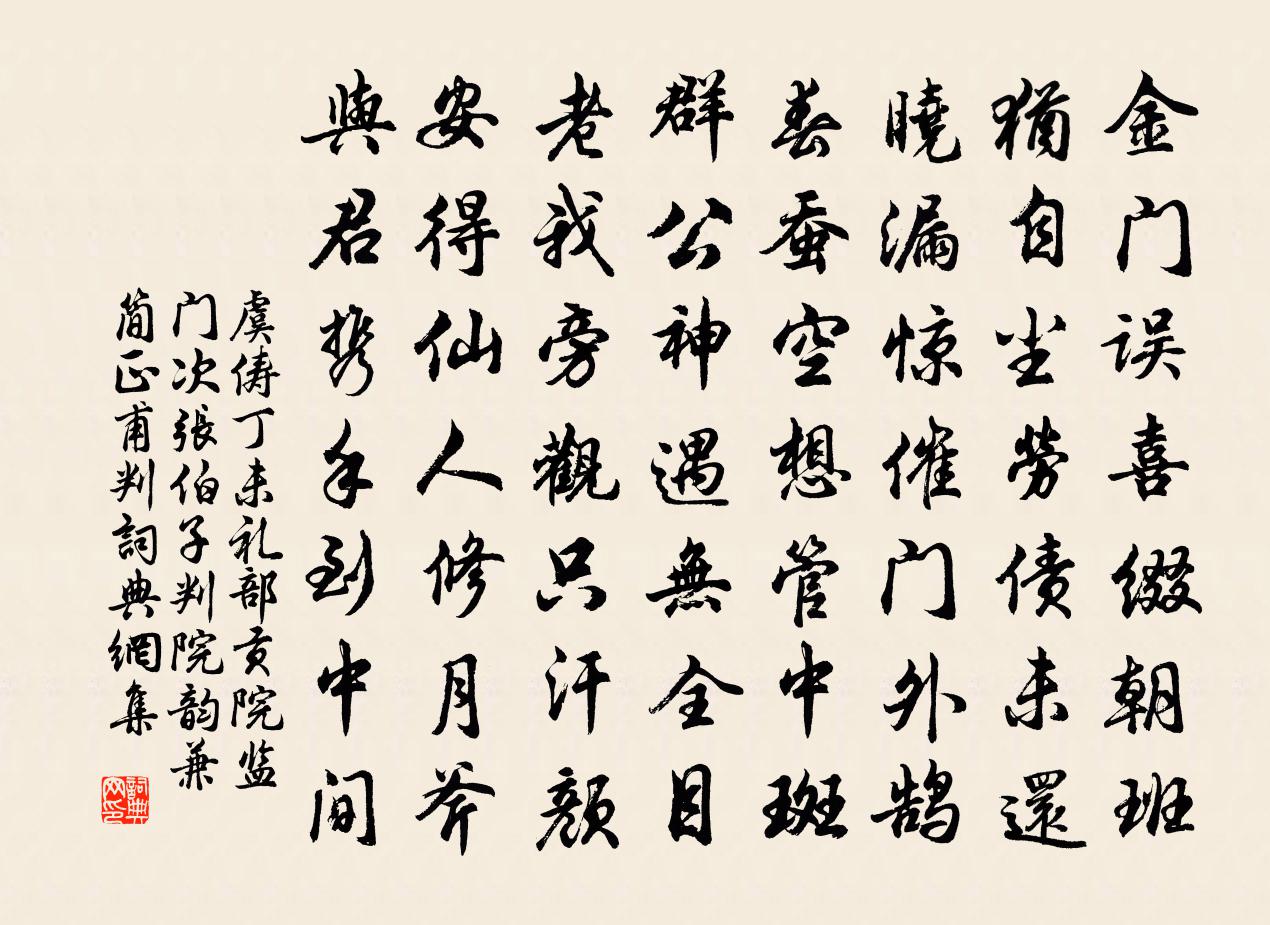 金门误喜缀朝班
犹自尘劳债未還
曉漏惊催门外鹄
春蚕空想管中斑
群公神遇無全目
老我旁觀只汗颜
安得仙人修月斧
與君携手到中间
虞俦丁未礼部贡院监
门次張伯子判院韵兼
简正甫判詞典網集
詞典
网印